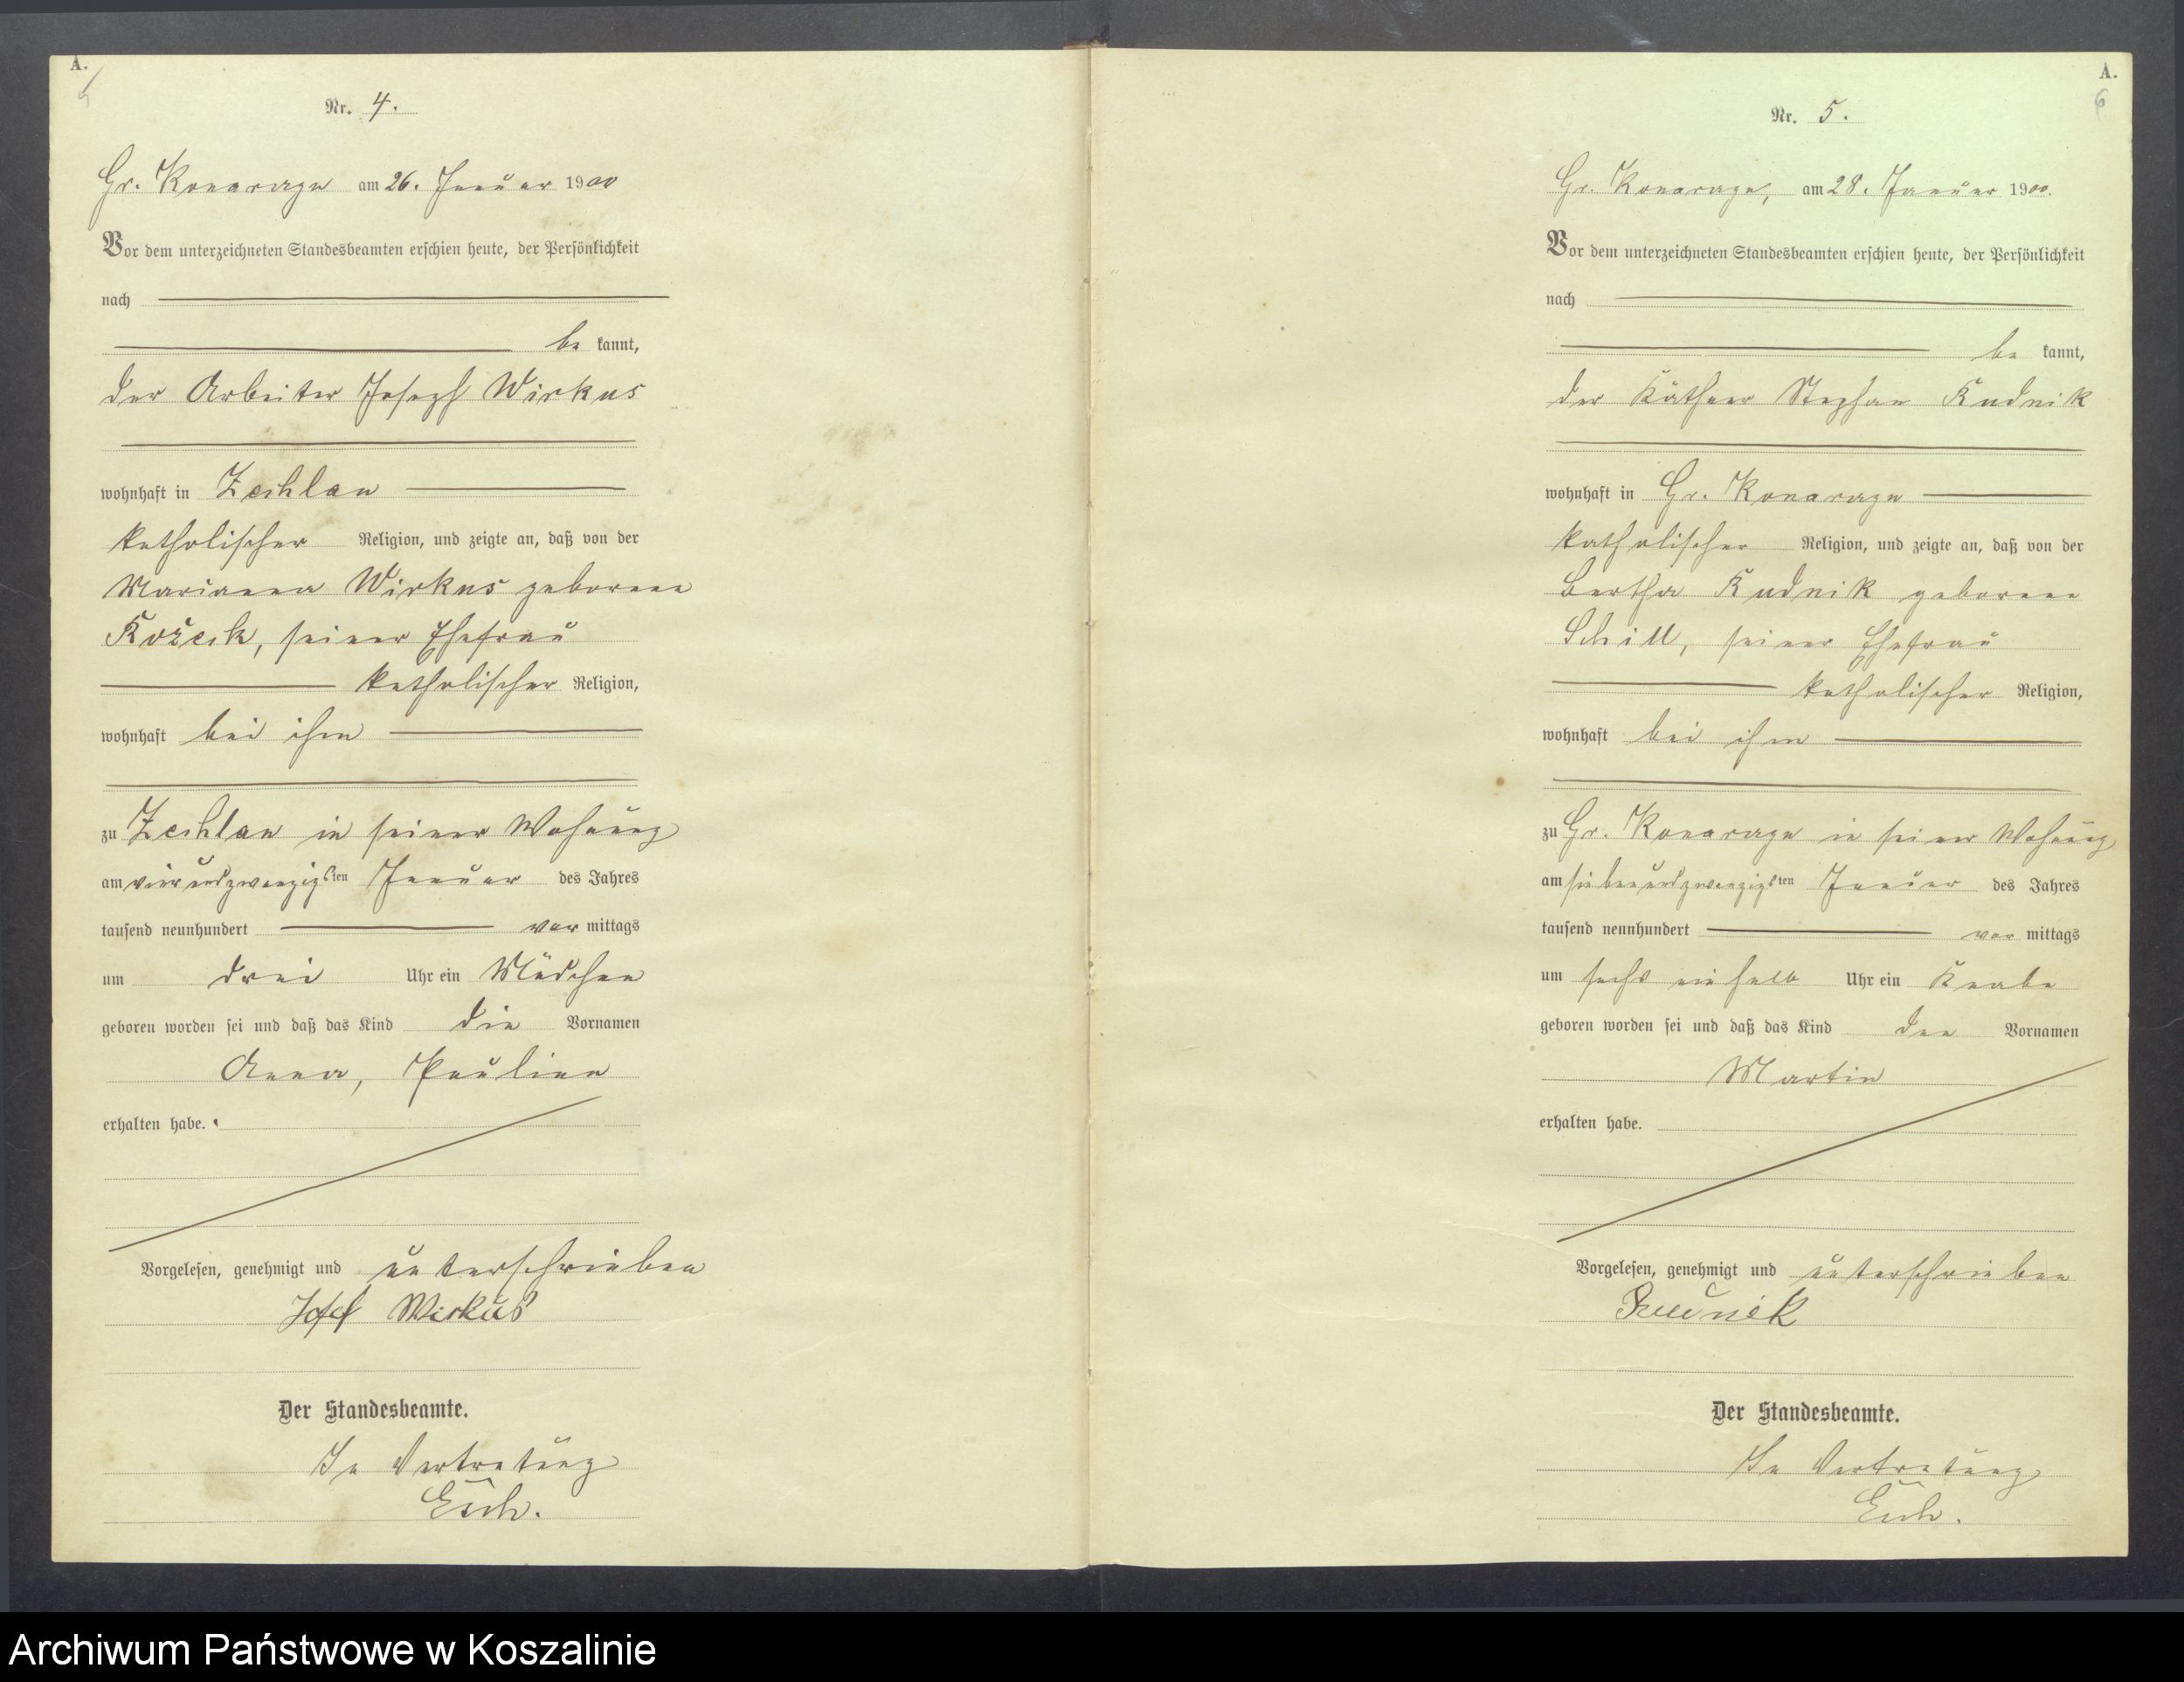 A.
5
Nr. 4.
Gr. Konarzyn am 26. Januar 1900
Vor dem unterzeichneten Standesbeamten erschien heute, der Persönlichkeit
nach
be kannt,
der Arbeiter Joseph Wirkus
wohnhaft in Zechlau
katholischer Religion, und zeigte an, daß von der
Marianna Wirkus geborene
seiner Ehefrau
katholischer Religion,
wohnhaft bei ihm
zu Zechlau in seiner Wohnung
am vierundzwanzigsten Januar des Jahres
tausend neunhundert vor mittags
um drei Uhr ein Mädchen
geboren worden sei und daß das Kind die Vornamen
Anna, Pauline
erhalten habe.
Vorgelesen, genehmigt und unterschrieben
Josef Wirkus
Der Standesbeamte.
In Vertretung
A.
6
Nr. 5.
Gr. Konarzyn, am 28. Januar 1900.
Vor dem unterzeichneten Standesbeamten erschien heute, der Persönlichkeit
nach
be kannt,
der Käthner Stephan Rudnik
wohnhaft in Gr. Konarzyn
katholischer Religion, und zeigte an, daß von der
Bertha Rudnik geborene
Schill, seiner Ehefrau
katholischer Religion,
wohnhaft bei ihm
zu Gr. Konarzyn in seiner Wohnung
am siebenundzwanzigsten Januar des Jahres
tausend neunhundert vor mittags
um sechs ein halb Uhr ein Knabe
geboren worden sei und daß das Kind den Vornamen
Martin
erhalten habe.
Vorgelesen, genehmigt und unterschrieben
Rudnik
Der Standesbeamte.
In Vertretung
Archiwum Państwowe w Koszalinie